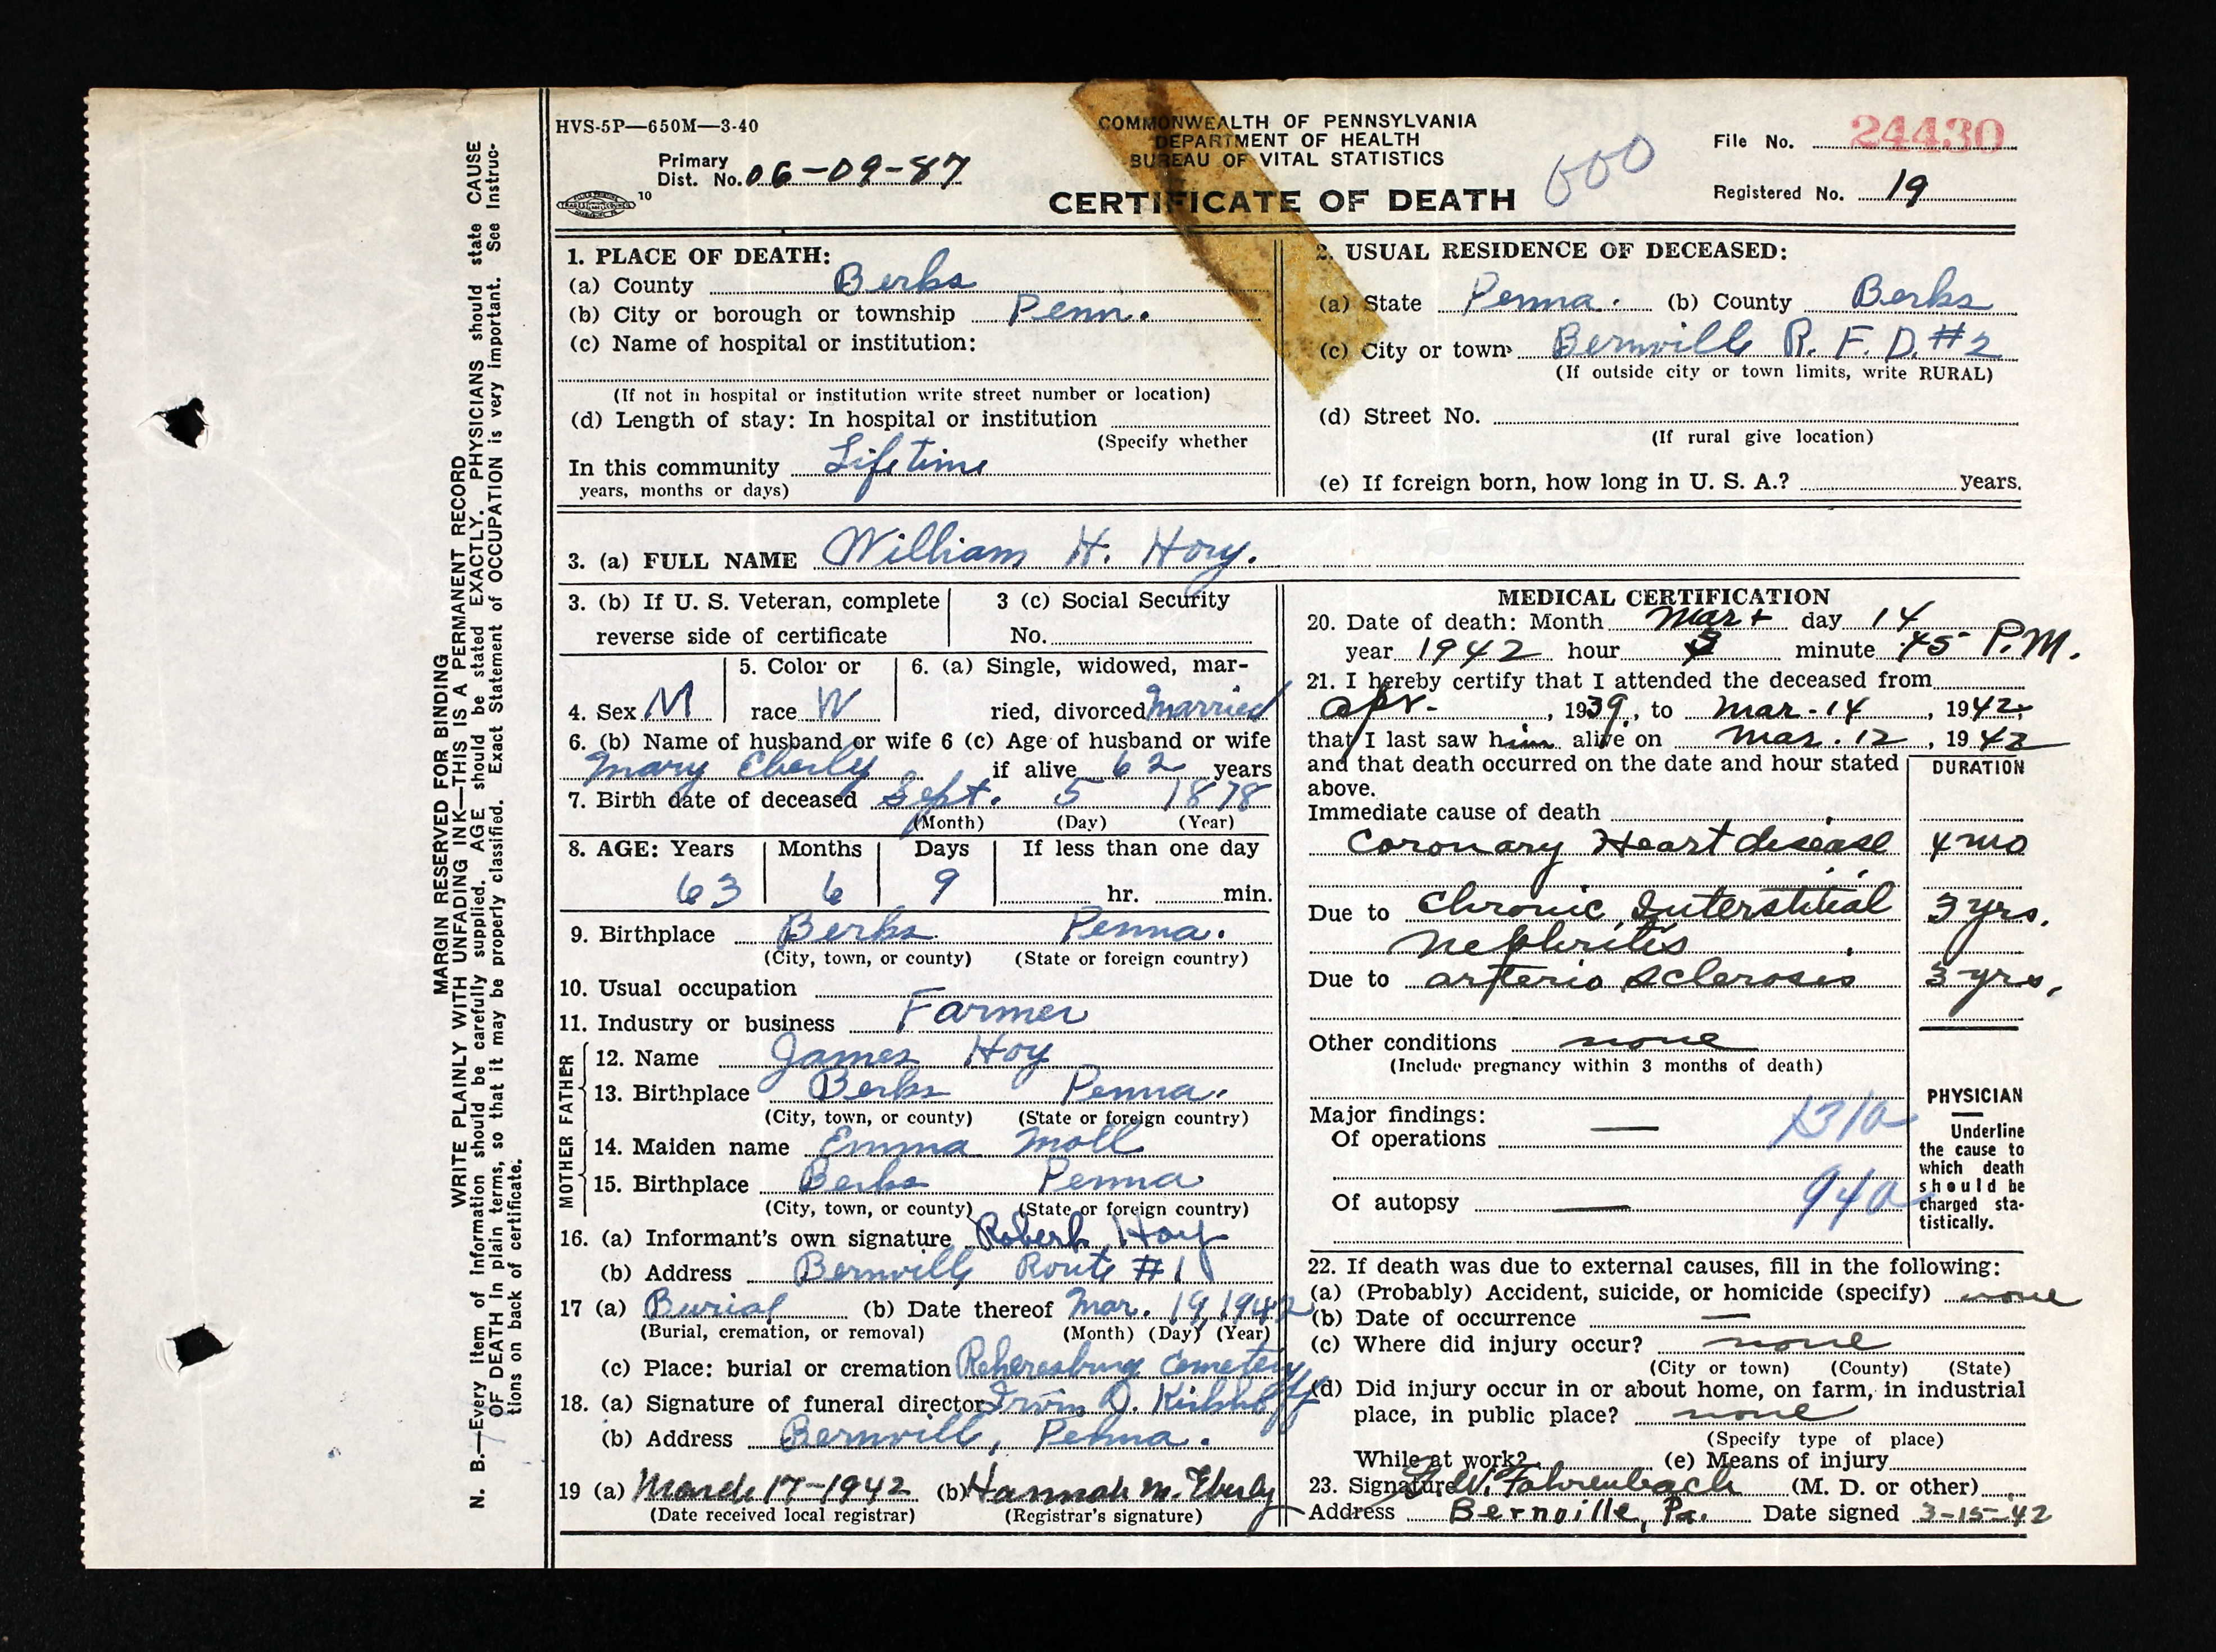 HVS-5P—650M—3-40
COMMONWEALTH OF PENNSYLVANIA
DEPARTMENT OF HEALTH
BUREAU OF VITAL STATISTICS
CERTIFICATE OF DEATH
600
Primary
Dist. No. 06-09-87
10
File No. 24430
Registered No. 19
MARGIN RESERVED FOR BINDING
WRITE PLAINLY WITH UNFADING INK—THIS IS A PERMANENT RECORD
N. B.—Every item of information should be carefully supplied. AGE should be stated EXACTLY. PHYSICIANS should state CAUSE
OF DEATH in plain terms, so that it may be properly classified. Exact Statement of OCCUPATION is very important. See Instruc-
tions on back of certificate.
1. PLACE OF DEATH:
(a) County Berks
(b) City or borough or township Penn.
(c) Name of hospital or institution:
(If not in hospital or institution write street number or location)
(d) Length of stay: In hospital or institution
(Specify whether
In this community Lifetime
years, months or days)
2. USUAL RESIDENCE OF DECEASED:
(a) State Penna. (b) County Berks
(c) City or town Bernville R. F. D. #2
(If outside city or town limits, write RURAL)
(d) Street No.
(If rural give location)
(e) If foreign born, how long in U. S. A.? years.
3. (a) FULL NAME William H. Hoy.
3. (b) If U. S. Veteran, complete
reverse side of certificate
3 (c) Social Security
No.
4. Sex M
5. Color or
race W
6. (a) Single, widowed, mar-
ried, divorced Married
6. (b) Name of husband or wife 6 (c) Age of husband or wife
Mary Eberly if alive 62 years
7. Birth date of deceased Sept. 5 1878
(Month) (Day) (Year)
8. AGE: Years Months Days If less than one day
63 6 9 hr. min.
9. Birthplace Berks Penna.
(City, town, or county) (State or foreign country)
10. Usual occupation
11. Industry or business Farmer
FATHER
12. Name James Hoy
13. Birthplace Berks Penna.
(City, town, or county) (State or foreign country)
MOTHER
14. Maiden name Emma Moll
15. Birthplace Berks Penna
(City, town, or county) (State or foreign country)
16. (a) Informant's own signature Robert Hoy
(b) Address Bernville Route #1
17 (a) Burial (b) Date thereof Mar. 19, 1942
(Burial, cremation, or removal) (Month) (Day) (Year)
(c) Place: burial or cremation Rehersburg Cemetery
18. (a) Signature of funeral director Irvin O. Kirkhoff
(b) Address Bernvill, Penna.
19 (a) March 17-1942 (b) Hannah M. Eberly
(Date received local registrar) (Registrar's signature)
MEDICAL CERTIFICATION
20. Date of death: Month Mar day 14
year 1942 hour minute 45 P.M.
21. I hereby certify that I attended the deceased from
Apr- , 1939, to Mar-14 , 1942;
that I last saw him alive on Mar. 12 , 1942
and that death occurred on the date and hour stated
above.
DURATION
Immediate cause of death
Coronary Heart disease 4 mo
Due to Chronic Interstitial 3 yrs.
Nephritis
Due to arterio sclerosis 3 yrs.
Other conditions none
(Include pregnancy within 3 months of death)
Major findings:
Of operations — 131a
Of autopsy — 94a
PHYSICIAN
Underline
the cause to
which death
should be
charged sta-
tistically.
22. If death was due to external causes, fill in the following:
(a) (Probably) Accident, suicide, or homicide (specify) none
(b) Date of occurrence —
(c) Where did injury occur? none
(City or town) (County) (State)
(d) Did injury occur in or about home, on farm, in industrial
place, in public place? none
(Specify type of place)
While at work? (e) Means of injury
23. Signature W. Fahrenbach (M. D. or other)
Address Bernville, Pa. Date signed 3-15-42